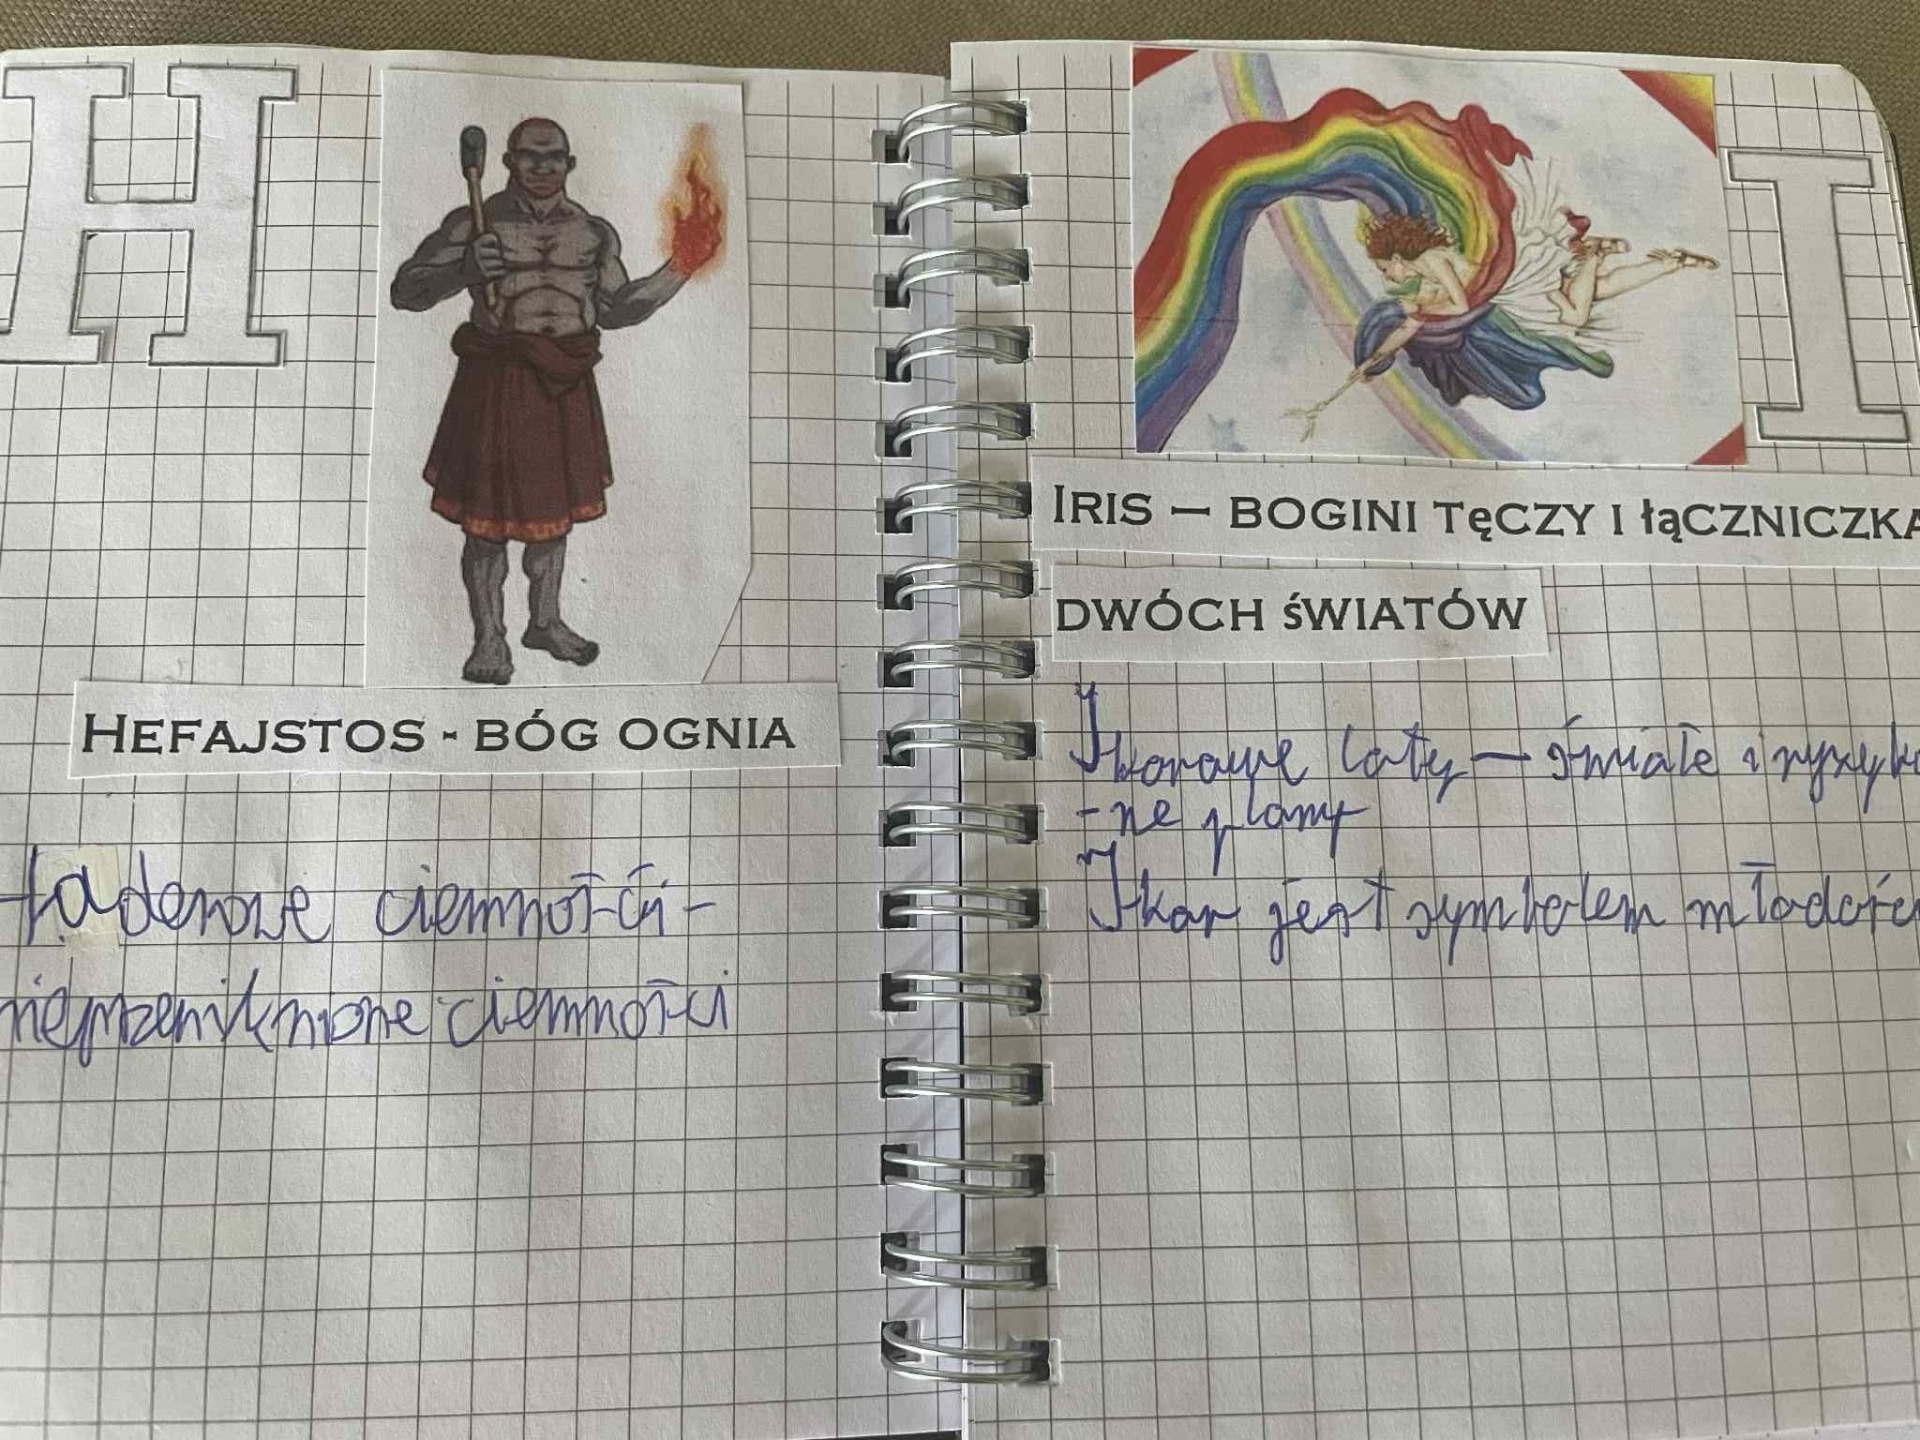 H
HEFAJSTOS - BÓG OGNIA
ciemności -
ciemności
I
IRIS – BOGINI TĘCZY I ŁĄCZNICZKA
DWÓCH ŚWIATÓW
Ikarowe loty — śmiałe i ryzyko
- ne plany
Ikar jest symbolem młodośc